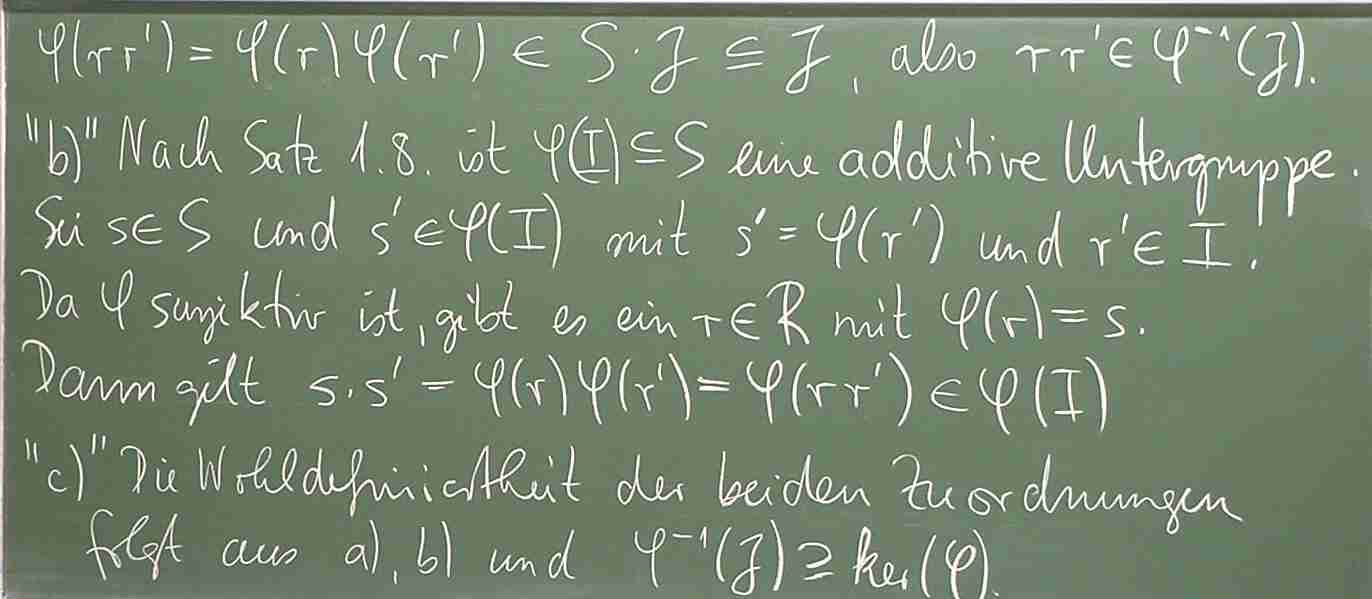 φ(rr') = φ(r)φ(r') ∈ S·J ⊆ J, also rr' ∈ φ⁻¹(J).
"b)" Nach Satz 1.8. ist φ(I) ⊆ S eine additive Untergruppe.
Sei s∈S und s' ∈ φ(I) mit s' = φ(r') und r' ∈ I.
Da φ surjektiv ist, gibt es ein r∈R mit φ(r) = s.
Dann gilt s·s' = φ(r)φ(r') = φ(rr') ∈ φ(I)
"c)" Die Wohldefiniertheit der beiden Zuordnungen
folgt aus a), b) und φ⁻¹(J) ⊇ ker(φ).